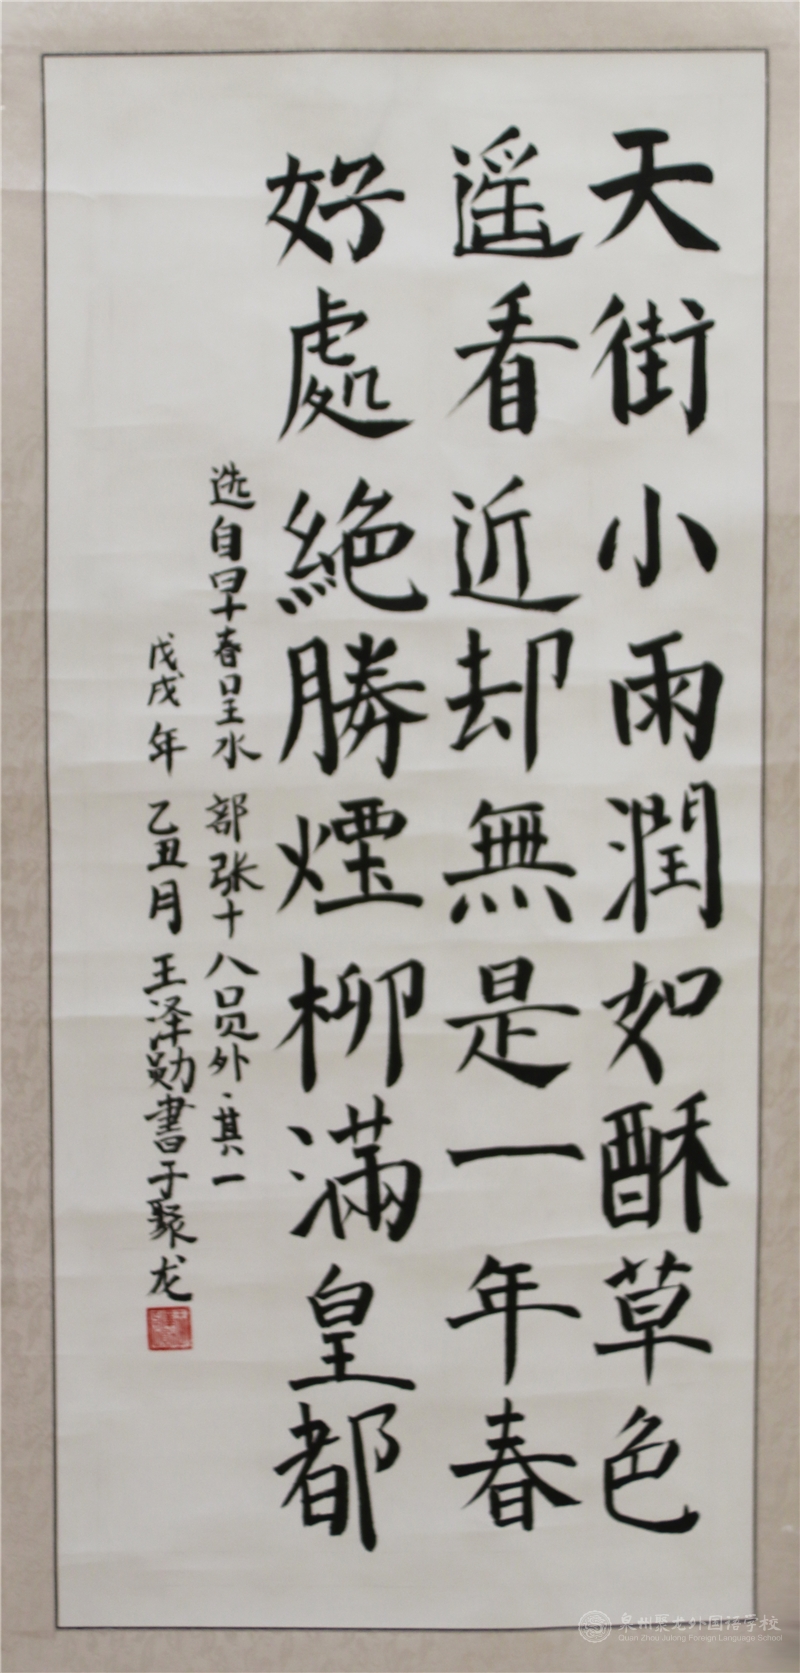 天街小雨潤如酥草色
遥看近却無是一年春
好處絶勝煙柳滿皇都
选自早春呈水部张十八员外、其一
戊戌年乙丑月王泽勋書于聚龙
泉州聚龙外国语学校
Quan Zhou Julong Foreign Language School